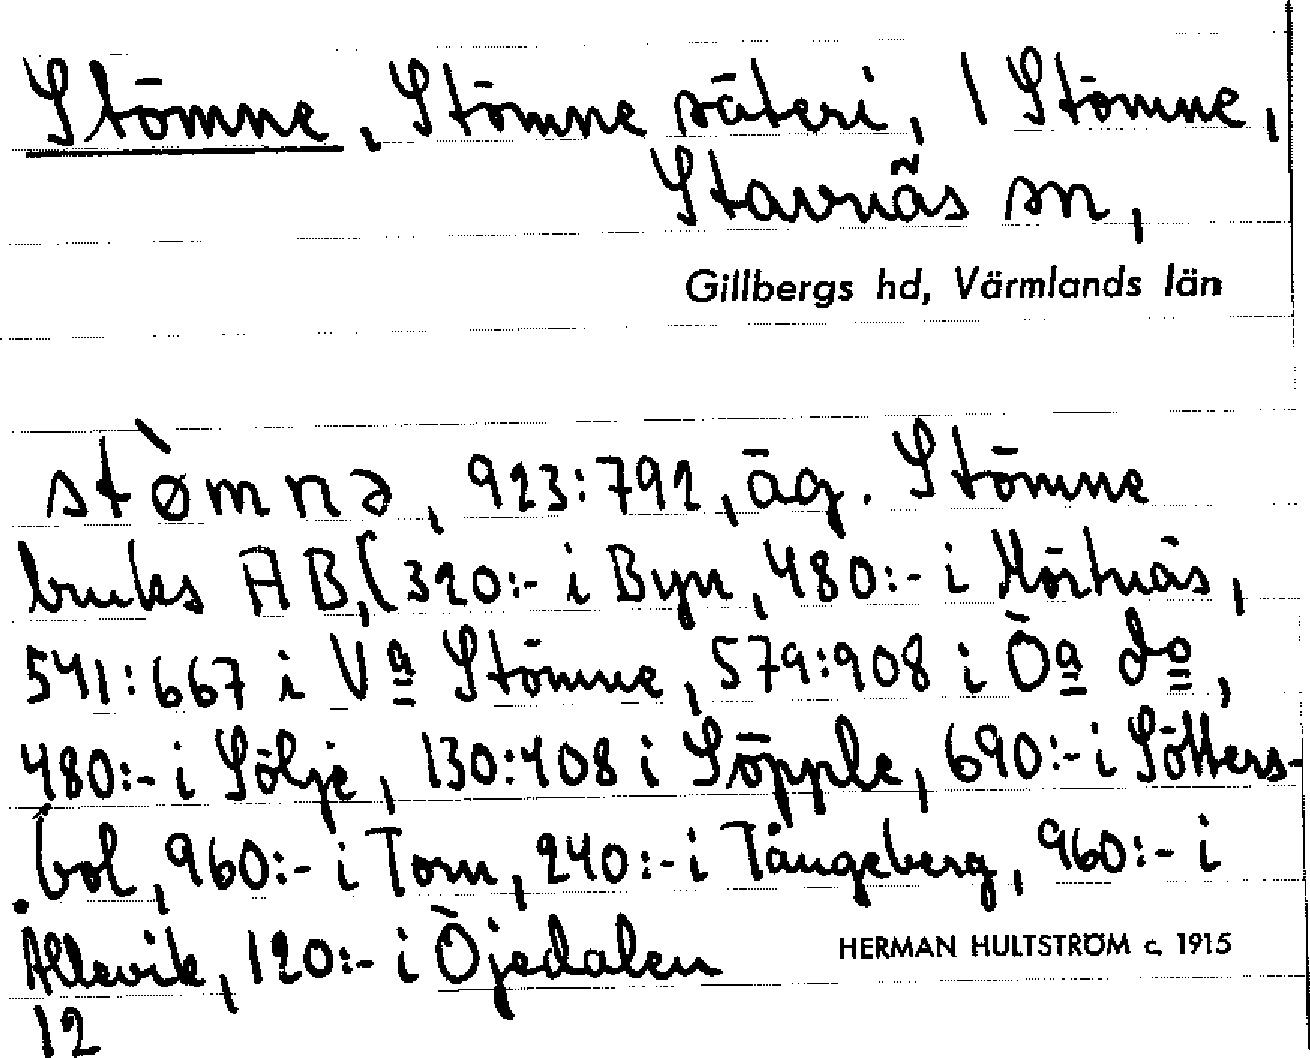 Stömne, Stömne säteri, 1 Stömne,
Stavnäs sn,
Gillbergs hd, Värmlands län
stø̀mnə, 923:792, äg. Stömne
bruks AB, (320:- i Byn, 480:- i Mörtnäs,
541:667 i Vª Stömne, 579:908 i Öª dº,
480:- i Sölje, 130:408 i Söpple, 690:- i Sötters-
bol, 960:- i Torn, 240:- i Tångeberg, 960:- i
Allevik, 120:- i Öjedalen
HERMAN HULTSTRÖM c. 1915
12